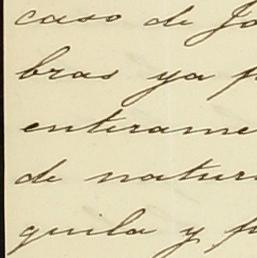 caso de Jo
bras ya p
enterame
de natur
quila y p